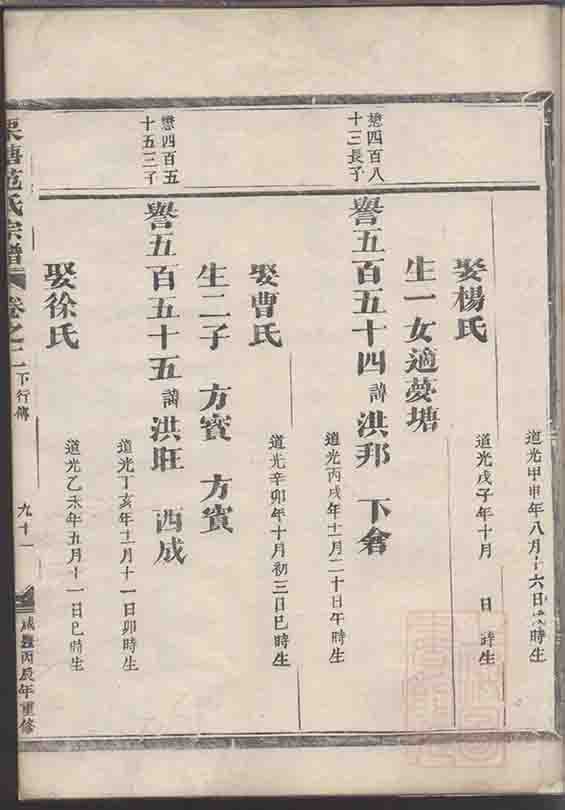 道光甲申年八月十六日戌時生
娶楊氏
道光戊子年十月 日 時生
生一女適蔆塘
懋四百八
十三長子
譽五百五十四 諱 洪邦 下倉
道光丙戌年十二月二十日午時生
娶曹氏
道光辛卯年十月初三日巳時生
生二子 方賓 方賓
懋四百五
十五三子
譽五百五十五 諱 洪旺 西成
道光丁亥年十二月十一日卯時生
娶徐氏
道光乙未年五月十一日巳時生
范氏宗譜 卷之二 下行傳 九十一 咸豐丙辰年重修